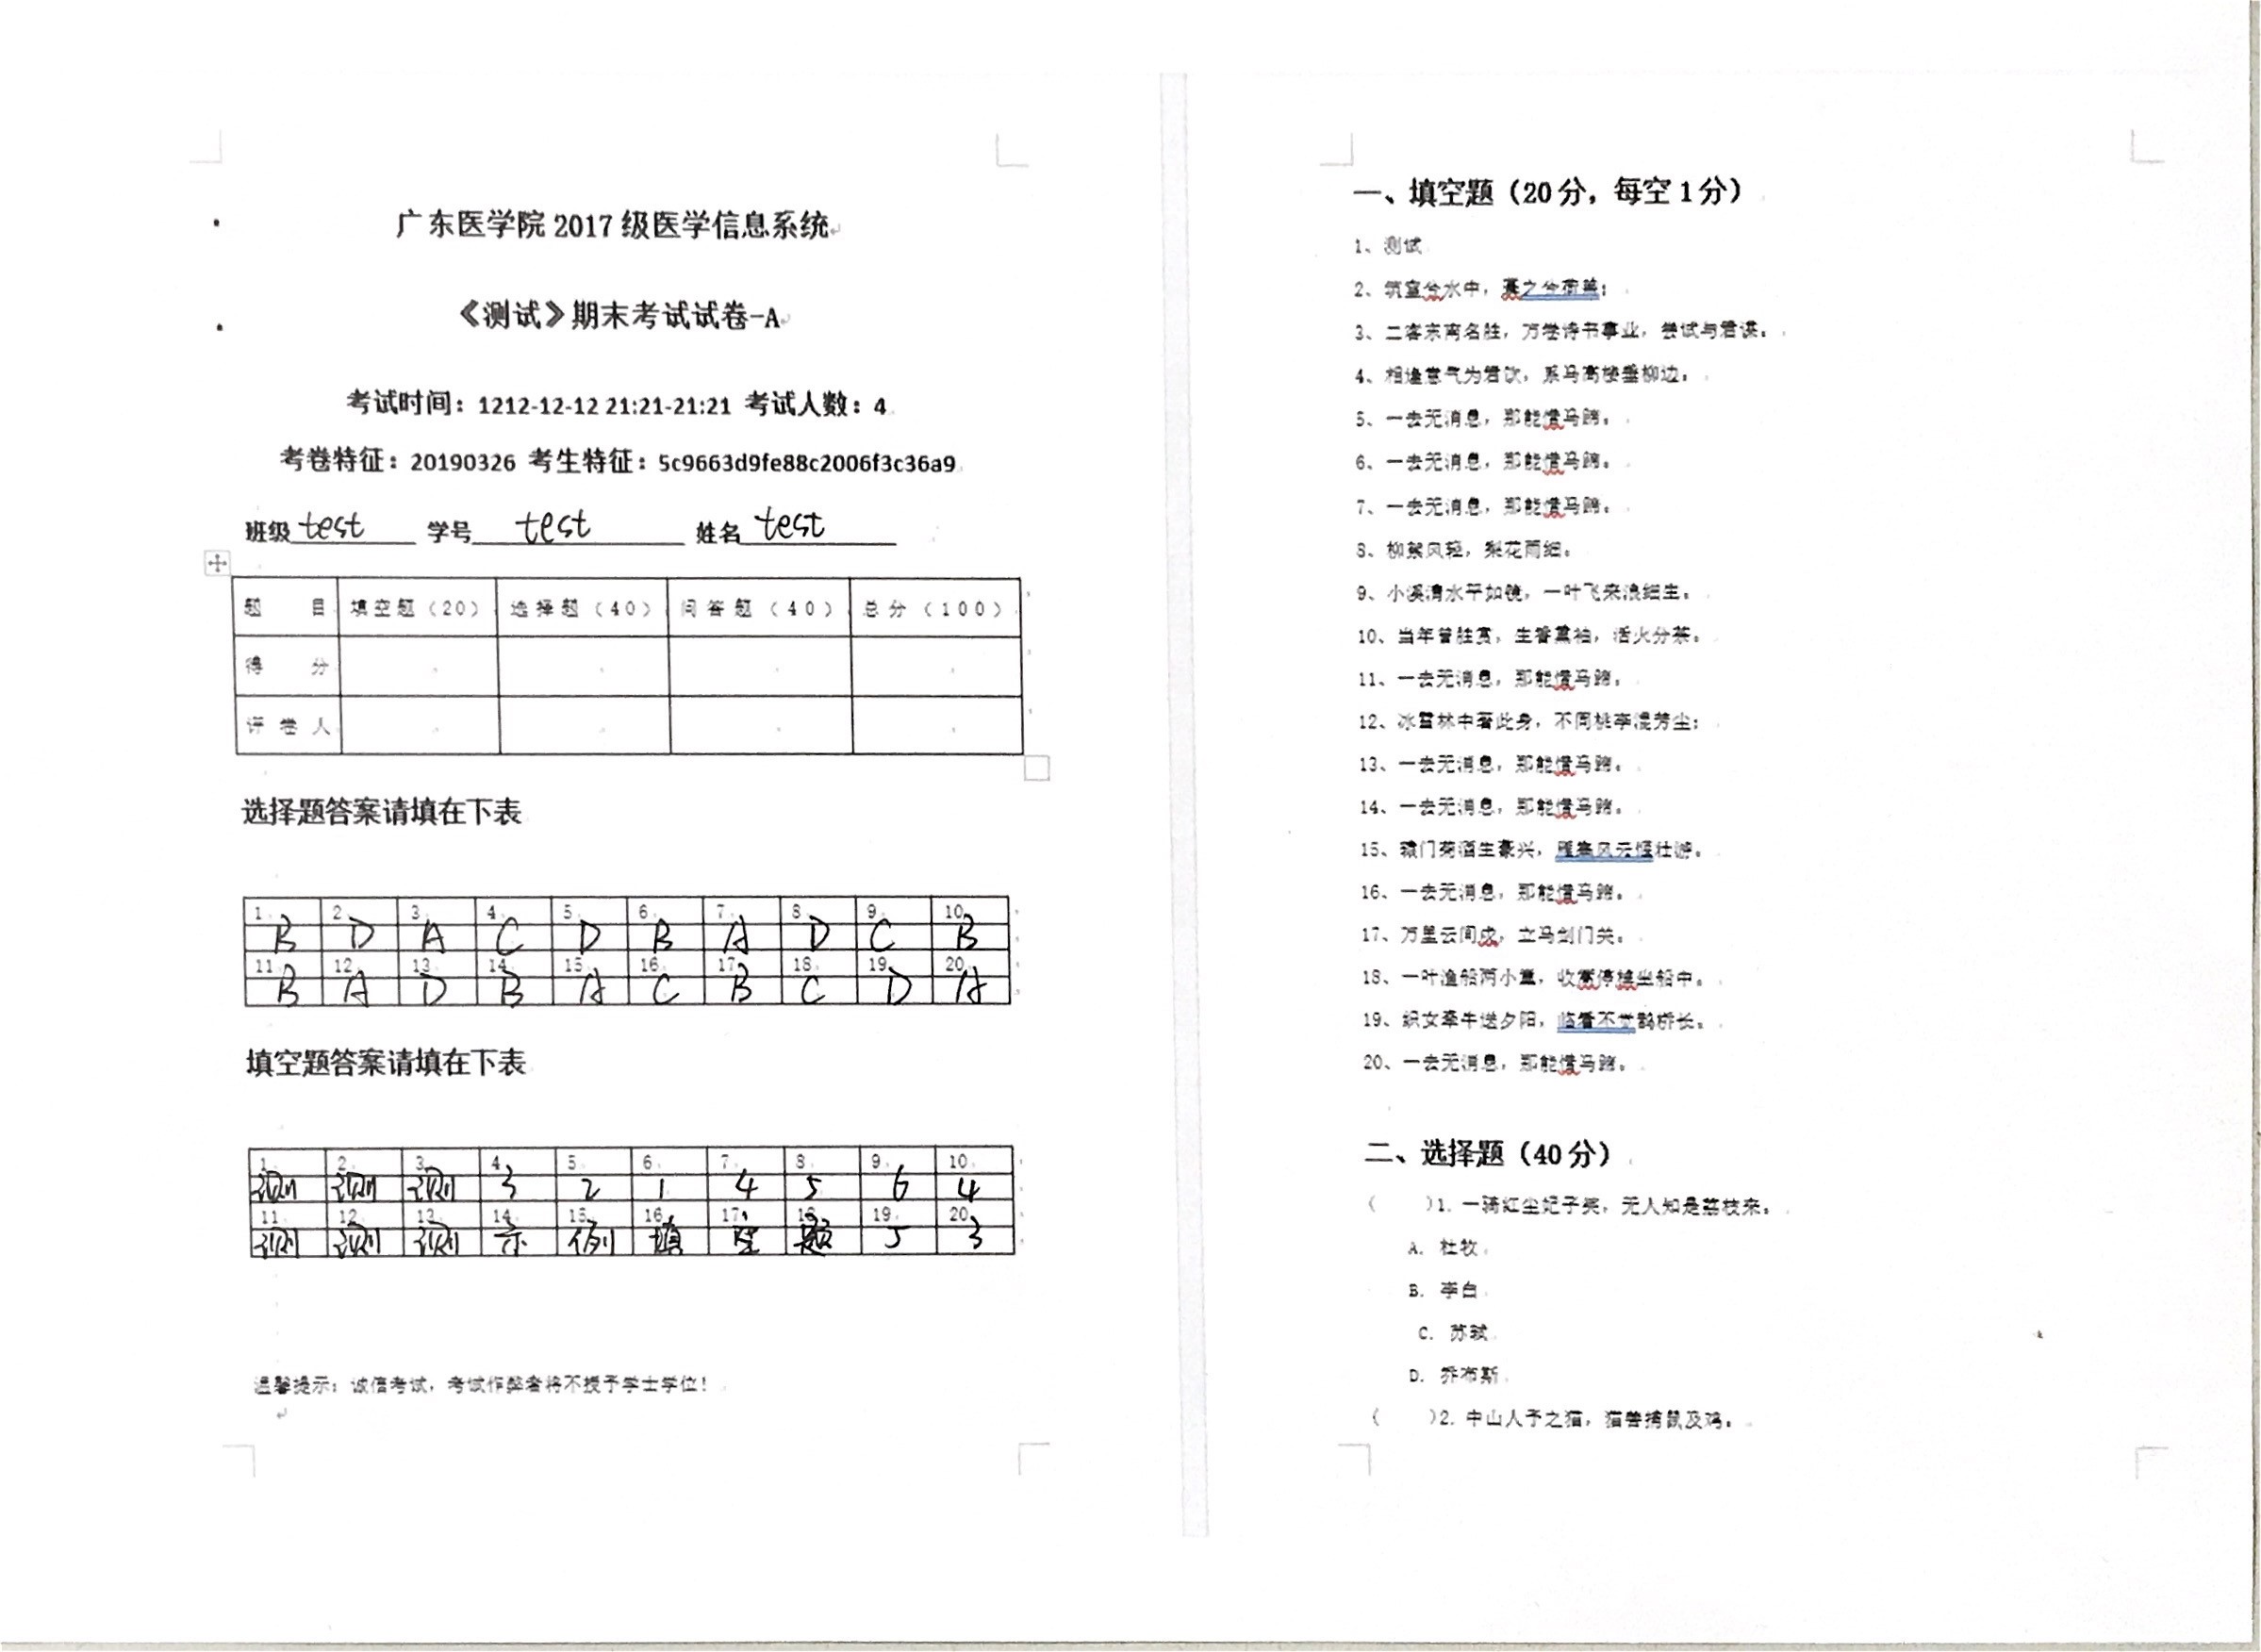 广东医学院 2017 级医学信息系统
《测试》期末考试试卷-A
考试时间：1212-12-12 21:21-21:21 考试人数：4
考卷特征：20190326 考生特征：5c9663d9fe88c2006f3c36a9
班级 test 学号 test 姓名 test
题 目 填空题（20） 选择题（40） 问答题（40） 总分（100）
得 分
评卷人
选择题答案请填在下表
1 2 3 4 5 6 7 8 9 10
B D A C D B A D C B
11 12 13 14 15 16 17 18 19 20
B A D B A C B C D A
填空题答案请填在下表
1 2 3 4 5 6 7 8 9 10
测 测 测 3 2 1 4 5 6 4
11 12 13 14 15 16 17 18 19 20
测 测 测 示 例 填 空 题 5 3
温馨提示：诚信考试，考试作弊者将不授予学士学位！
一、填空题（20 分，每空 1 分）
1、测试
2、筑室兮水中，葺之兮荷盖；
3、二客东南名胜，万卷诗书事业，尝试与君谋。
4、相逢意气为君饮，系马高楼垂柳边。
5、一去无消息，那能惜马蹄。
6、一去无消息，那能惜马蹄。
7、一去无消息，那能惜马蹄。
8、柳絮风轻，梨花雨细。
9、小溪清水平如镜，一叶飞来浪细生。
10、当年曾胜赏，生香熏袖，活火分茶。
11、一去无消息，那能惜马蹄。
12、冰雪林中著此身，不同桃李混芳尘；
13、一去无消息，那能惜马蹄。
14、一去无消息，那能惜马蹄。
15、辕门菊酒生豪兴，雁塞风云惬壮游。
16、一去无消息，那能惜马蹄。
17、万里云间戍，立马剑门关。
18、一叶渔船两小童，收篙停棹坐船中。
19、织女牵牛送夕阳，临看不觉鹊桥长。
20、一去无消息，那能惜马蹄。
二、选择题（40 分）
（ ）1. 一骑红尘妃子笑，无人知是荔枝来。
A. 杜牧
B. 李白
C. 苏轼
D. 乔布斯
（ ）2. 中山人予之猫，猫善捕鼠及鸡。